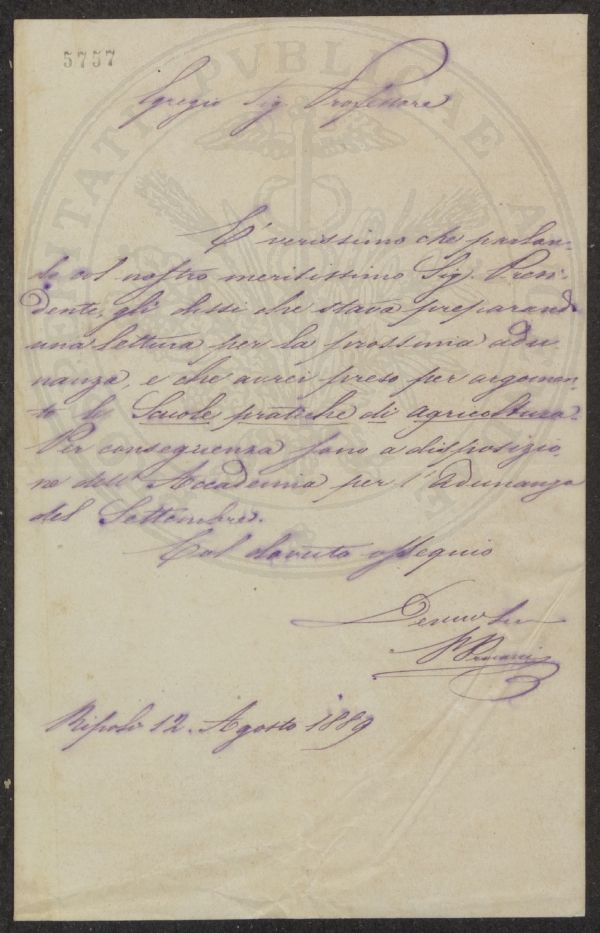 5757
PROSPERITATI PVBLICAE AVGENDAE
Egregio Sig. Professore
E' verissimo che parlan-
do col nostro meritissimo Sig. Presi-
dente, gli dissi che stava preparando
una lettura per la prossima adu
nanza, e che avrei preso per argomen-
to le Scuole pratiche di agricoltura.
Per conseguenza sono a disposizio
ne dell' Accademia per l'adunanza
del Settembre.
Col dovuto ossequio
Ripoli 12. Agosto 1889